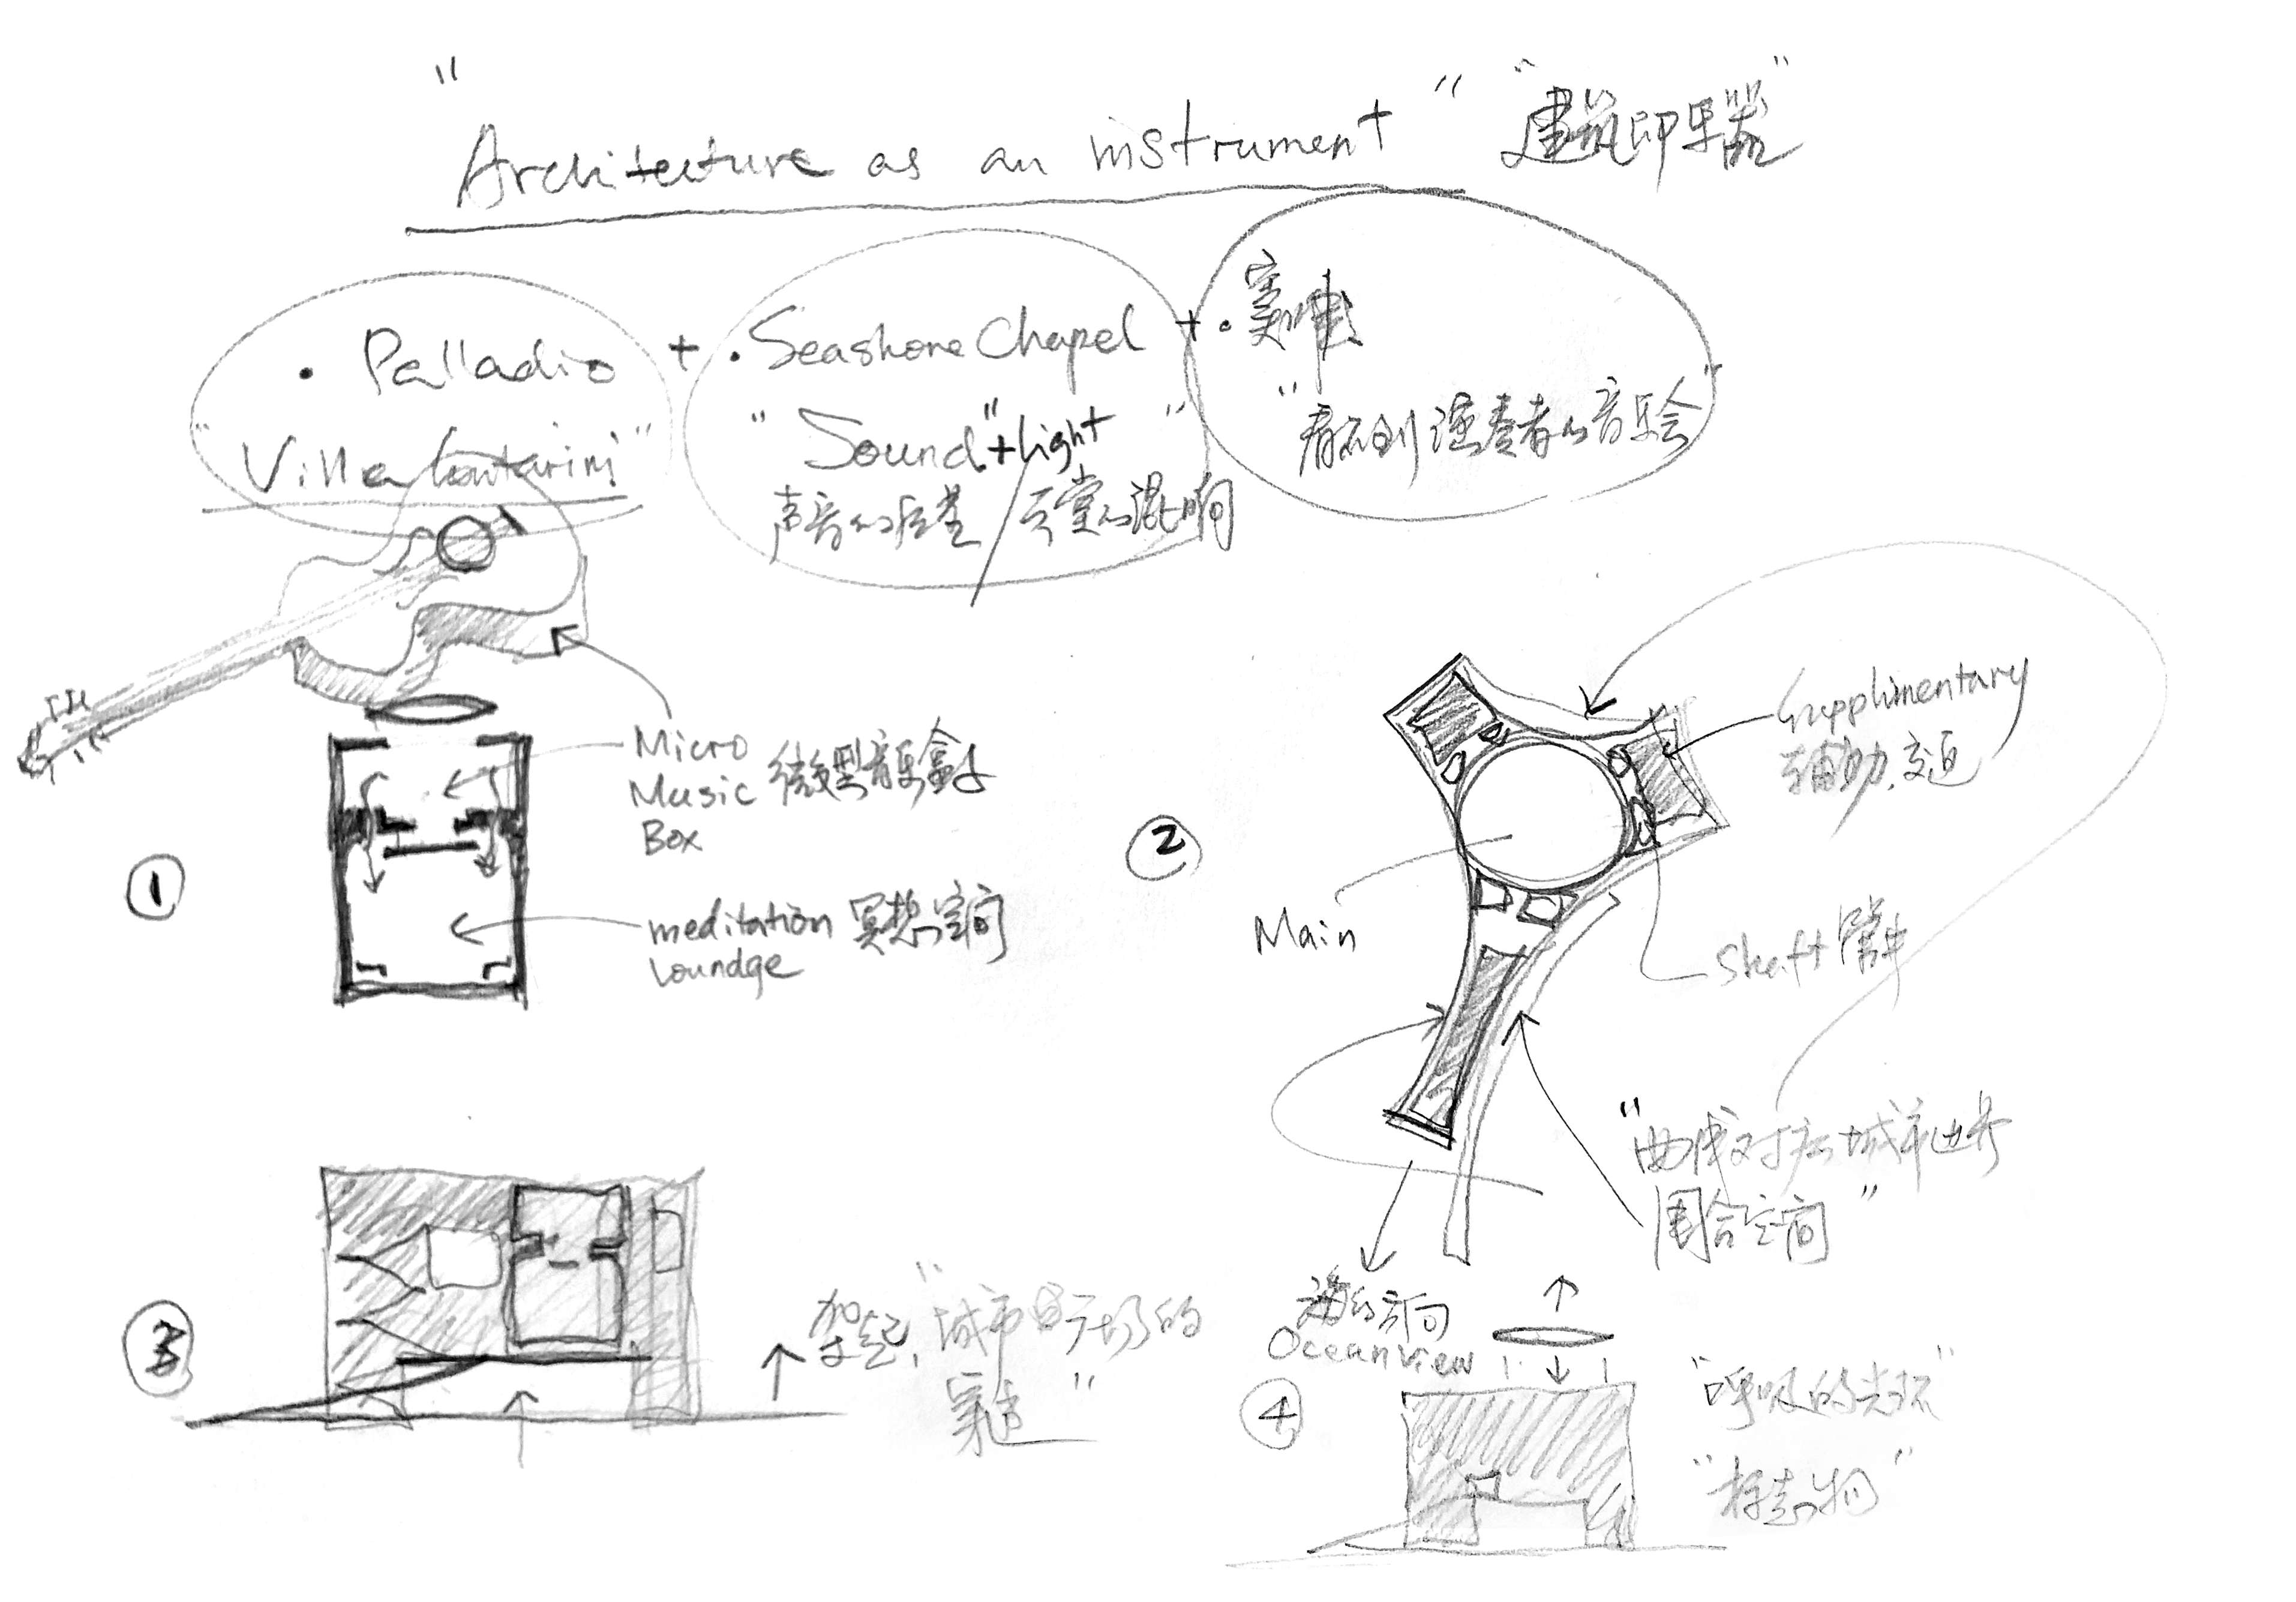 "Architecture as an instrument" "建筑即乐器"
· Palladio + · Seashore Chapel + ·
"Villa Contarini" "Sound"+light" "看不到演奏者的音乐会"
声音的 / 天堂的混响
Micro
Music 微型音乐盒子
Box
①
meditation 冥想空间
Loundge
②
Supplimentary
辅助交通
Main
Shaft 管井
"曲线对应城市边界
围合空间"
海的方向
Oceanview
③
架起,"城市广场的
"
④
"呼吸的光环"
"标志物"